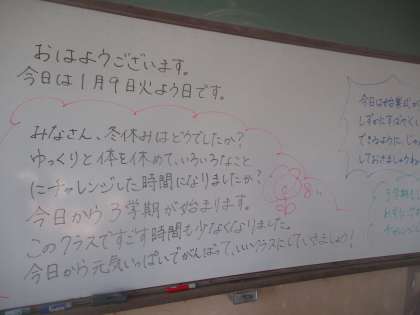 おはようございます。
今日は1月9日火よう日です。
みなさん、冬休みはどうでしたか?
ゆっくりと体を休めて、いろいろなこと
にチャレンジした時間になりましたか?
今日から3学期が始まります。
このクラスですごす時間も少なくなりました。
今日から元気いっぱいでがんばって、いいクラスにしていきましょう!
今日は始業式が
できるように、
しておきましょう
3学期も